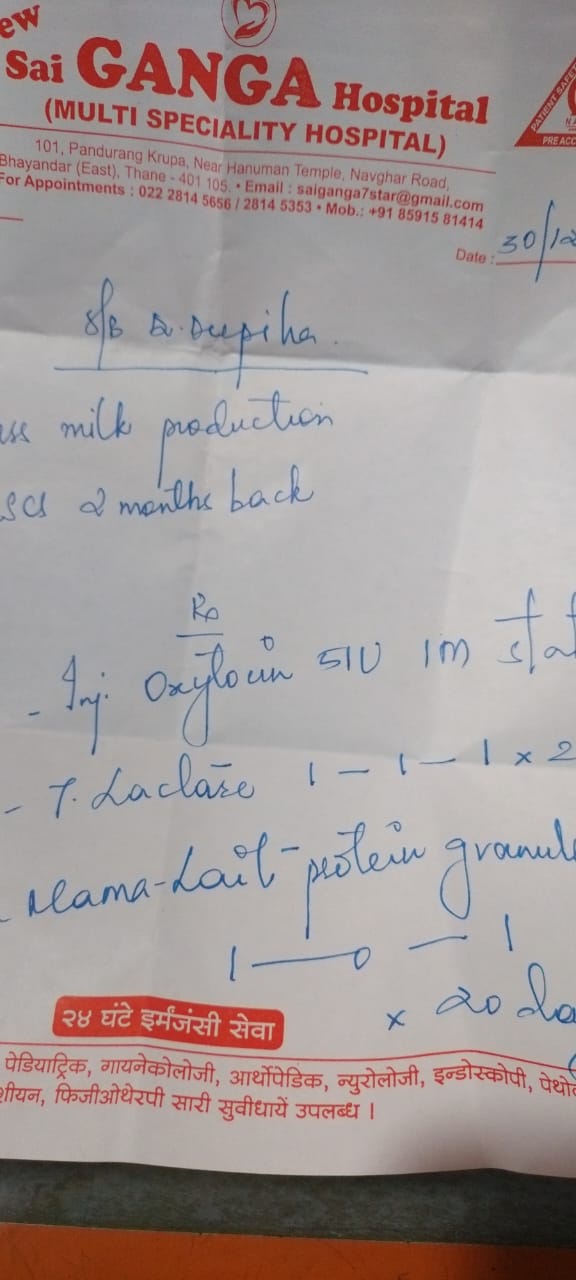 ew
Sai GANGA Hospital
(MULTI SPECIALITY HOSPITAL)
101, Pandurang Krupa, Near Hanuman Temple, Navghar Road,
Bhayandar (East), Thane - 401 105. • Email : saiganga7star@gmail.com
For Appointments : 022 2814 5656 / 2814 5353 • Mob.: +91 85915 81414
PATIENT SAFET
PRE ACC
Date : 30/12
S/B Dr. Deepika
ess milk production
LSCS 2 months back
Rx
- Inj. Oxytocin 5IU IM stat
- T. Lactare 1 - 1 - 1 x 2
- Mama-Lait-protein granule
1 - 0 - 1
x 20 da
२४ घंटे इर्मंजंसी सेवा
पेडियाट्रिक, गायनेकोलोजी, आर्थोपेडिक, न्युरोलोजी, इन्डोस्कोपी, पेथो
शीयन, फिजीओथेरपी सारी सुवीधायें उपलब्ध ।